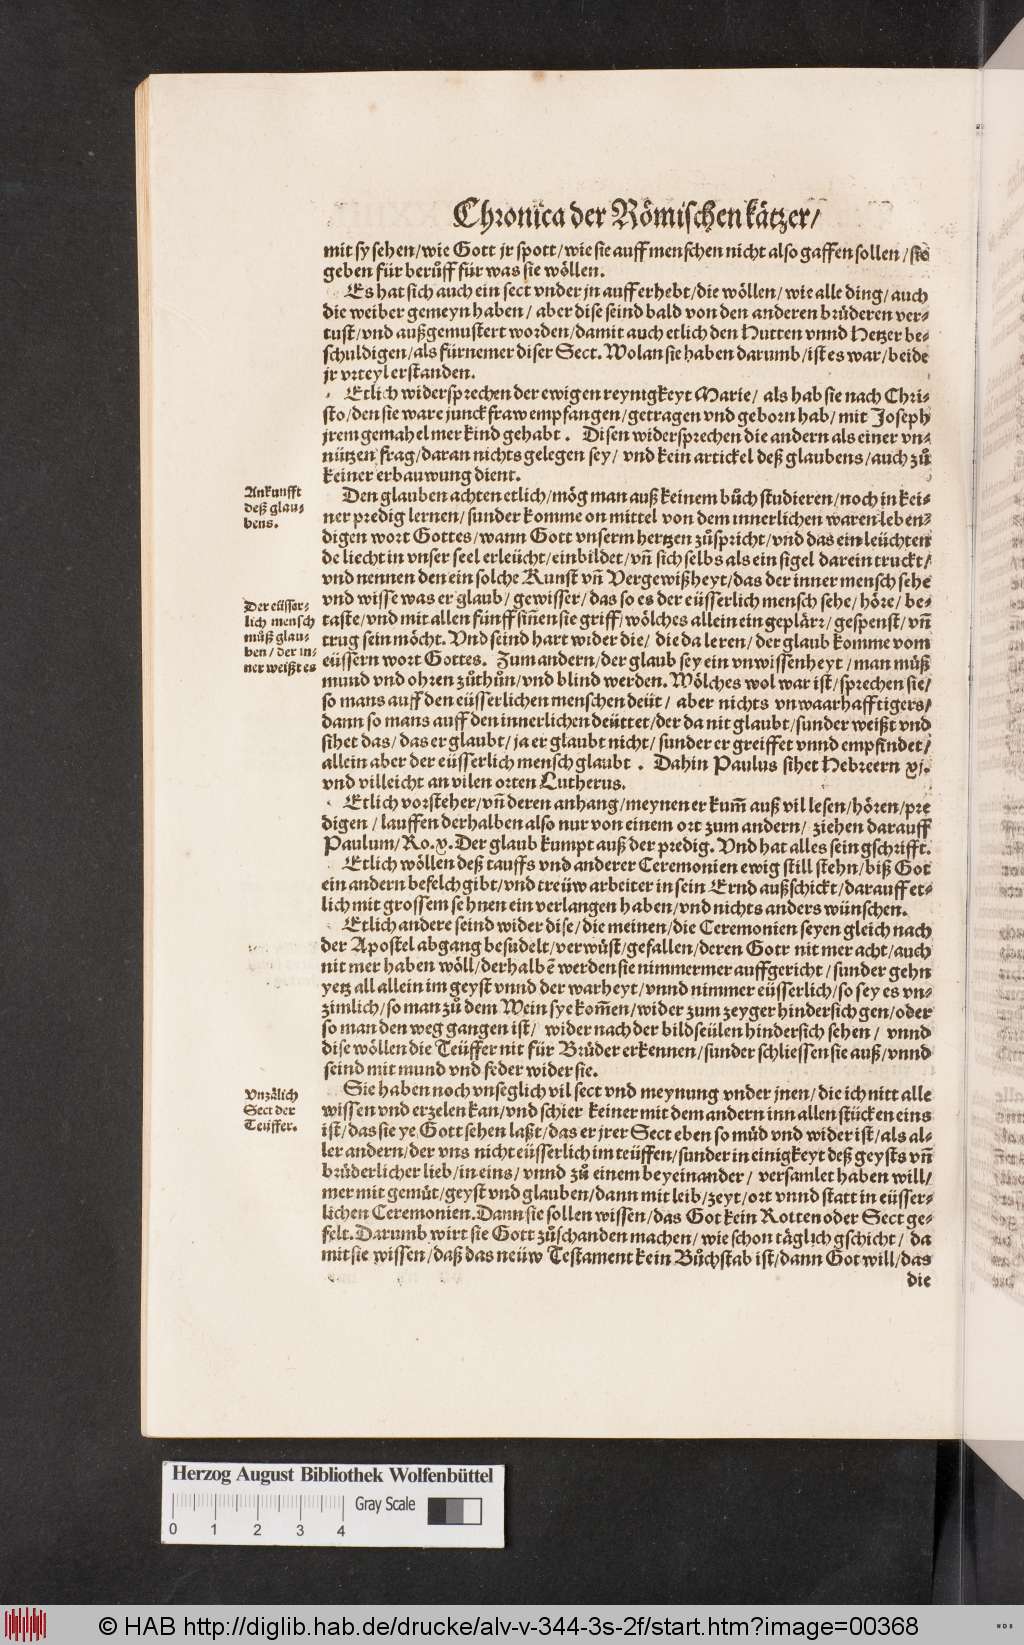 Chronica der Römischen kätzer/
mit sy sehen/wie Gott jr spott/wie sie auff menschen nicht also gaffen sollen/sie
geben für berůff für was sie wöllen.
Es hat sich auch ein sect vnder jn auff erhebt/die wöllen/wie alle ding/auch
die weiber gemeyn haben/aber dise seind bald von den anderen brüderen ver-
tust/vnd außgemustert worden/damit auch etlich den Hutten vnnd Hetzer be-
schuldigen/als fürnemer diser Sect. Wolan sie haben darumb/ist es war/beide
jr vrteyl erstanden.
Etlich widersprechen der ewigen reynigkeyt Marie/ als hab sie nach Chri-
sto/den sie ware junckfraw empfangen/getragen vnd geborn hab/mit Joseph
jrem gemahel mer kind gehabt. Disen widersprechen die andern als einer vn-
nützen frag/daran nichts gelegen sey/ vnd kein artickel deß glaubens/auch zů
keiner erbauwung dient.
Ankunfft
deß glau-
bens.
Den glauben achten etlich/mög man auß keinem bůch studieren/noch in kei-
ner predig lernen/sunder komme on mittel von dem innerlichen waren leben-
digen wort Gottes/wann Gott vnserm hertzen zůspricht/vnd das ein leüchten
de liecht in vnser seel erleücht/einbildet/vñ sich selbs als ein sigel darein truckt/
vnd nennen den ein solche Kunst vñ Vergewißheyt/das der inner mensch sehe
Der eüsser-
lich mensch
můß glau-
ben/der in-
ner weißt es
vnd wisse was er glaub/gewisser/das so es der eüsserlich mensch sehe/höre/be-
taste/vnd mit allen fünff siñen sie griff/wölches allein ein geplärr/gespenst/vñ
trug sein möcht. Vnd seind hart wider die/die da leren/der glaub komme vom
eüssern wort Gottes. Zum andern/der glaub sey ein vnwissenheyt/man můß
mund vnd ohren zůthůn/vnd blind werden. Wölches wol war ist/sprechen sie/
so mans auff den eüsserlichen menschen deüt/ aber nichts vnwaarhafftigers/
dann so mans auff den innerlichen deüttet/der da nit glaubt/sunder weißt vnd
sihet das/das er glaubt/ja er glaubt nicht/sunder er greiffet vnnd empfindet/
allein aber der eüsserlich mensch glaubt. Dahin Paulus sihet Hebreern xj.
vnd villeicht an vilen orten Lutherus.
Etlich vorsteher/vñ deren anhang/meynen er kum̃ auß vil lesen/hören/pre
digen/lauffen derhalben also nur von einem ort zum andern/ziehen darauff
Paulum/Ro.x. Der glaub kumpt auß der predig. Vnd hat alles sein gschrifft.
Etlich wöllen deß tauffs vnd anderer Ceremonien ewig still stehn/biß Got
ein andern befelch gibt/vnd treüw arbeiter in sein Ernd außschickt/darauff et-
lich mit grossem sehnen ein verlangen haben/vnd nichts anders wünschen.
Etlich andere seind wider dise/die meinen/die Ceremonien seyen gleich nach
der Apostel abgang besudelt/verwüst/gefallen/deren Gott nit mer acht/auch
nit mer haben wöll/derhalbẽ werden sie nimmermer auffgericht/sunder gehn
yetz all allein im geyst vnnd der warheyt/vnnd nimmer eüsserlich/so sey es vn-
zimlich/so man zů dem Wein sye kom̃en/wider zum zeyger hindersich gen/oder
so man den weg gangen ist/ wider nach der bildseülen hindersich sehen/ vnnd
dise wöllen die Teüffer nit für Brüder erkennen/sunder schliessen sie auß/vnnd
seind mit mund vnd feder wider sie.
Vnzälich
Sect der
Teüffer.
Sie haben noch vnseglich vil sect vnd meynung vnder jnen/die ich nitt alle
wissen vnd erzelen kan/vnd schier keiner mit dem andern inn allen stücken eins
ist/das sie ye Gott sehen laßt/das er jrer Sect eben so müd vnd wider ist/als al-
ler andern/der vns nicht eüsserlich im teüffen/sunder in einigkeyt deß geysts vñ
brüderlicher lieb/in eins/vnnd zů einem beyeinander/ versamlet haben will/
mer mit gemüt/geyst vnd glauben/dann mit leib/zeyt/ort vnnd statt in eüsser-
lichen Ceremonien. Dann sie sollen wissen/das Got kein Rotten oder Sect ge-
felt. Darumb wirt sie Gott zůschanden machen/wie schon täglich gschicht/ da
mit sie wissen/daß das neüw Testament kein Bůchstab ist/dann Got will/das
die
Herzog August Bibliothek Wolfenbüttel
Gray Scale
0 1 2 3 4
© HAB http://diglib.hab.de/drucke/alv-v-344-3s-2f/start.htm?image=00368